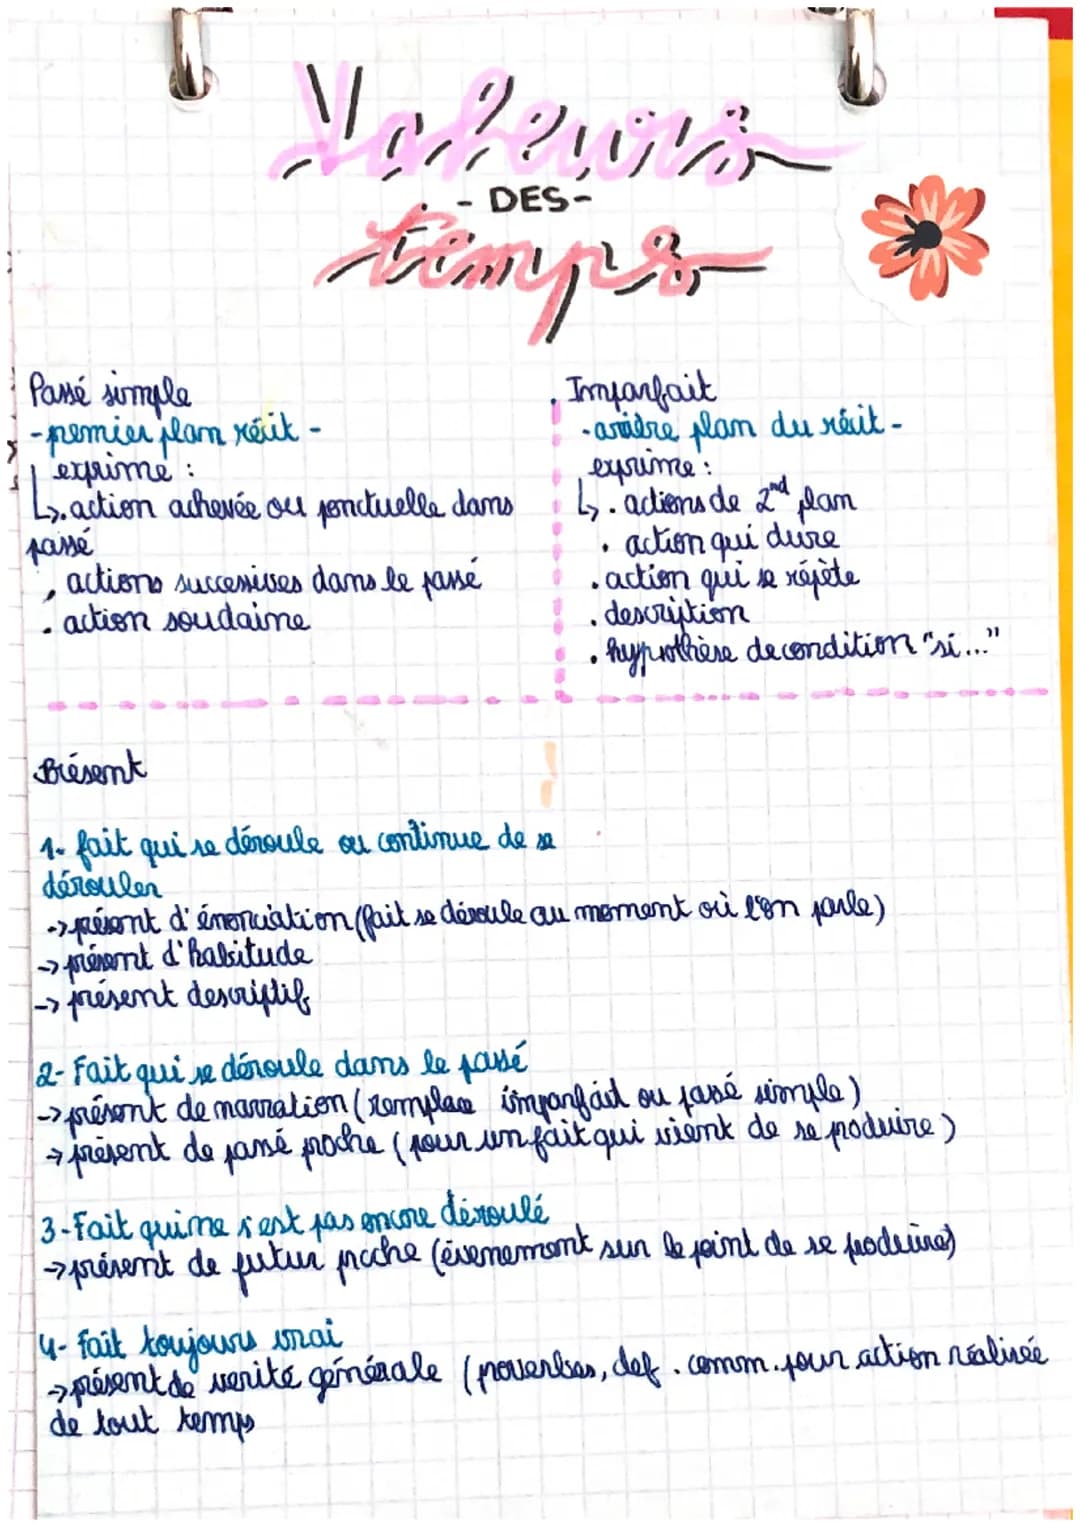 Valeurs
- DES -
temps
Passé simple
- premier plan récit -
exprime :
↳. action achevée ou ponctuelle dans
passé
. actions successives dans le passé
. action soudaine
Imparfait
- arrière plan du récit -
exprime :
↳ . actions de 2nd plan
. action qui dure
. action qui se répète
. description
. hypothèse de condition "si..."
Présent
1- fait qui se déroule ou continue de se
dérouler
-> présent d'énonciation (fait se déroule au moment où l'on parle)
-> présent d'habitude
-> présent descriptif
2- Fait qui se déroule dans le passé
-> présent de narration (remplace imparfait ou passé simple)
-> présent de passé proche (pour un fait qui vient de se produire)
3- Fait qui ne s'est pas encore déroulé
-> présent de futur proche (évenement sur le point de se produire)
4- fait toujours vrai
-> présent de verité générale (proverbes, def. comm. pour action réalisée
de tout temps